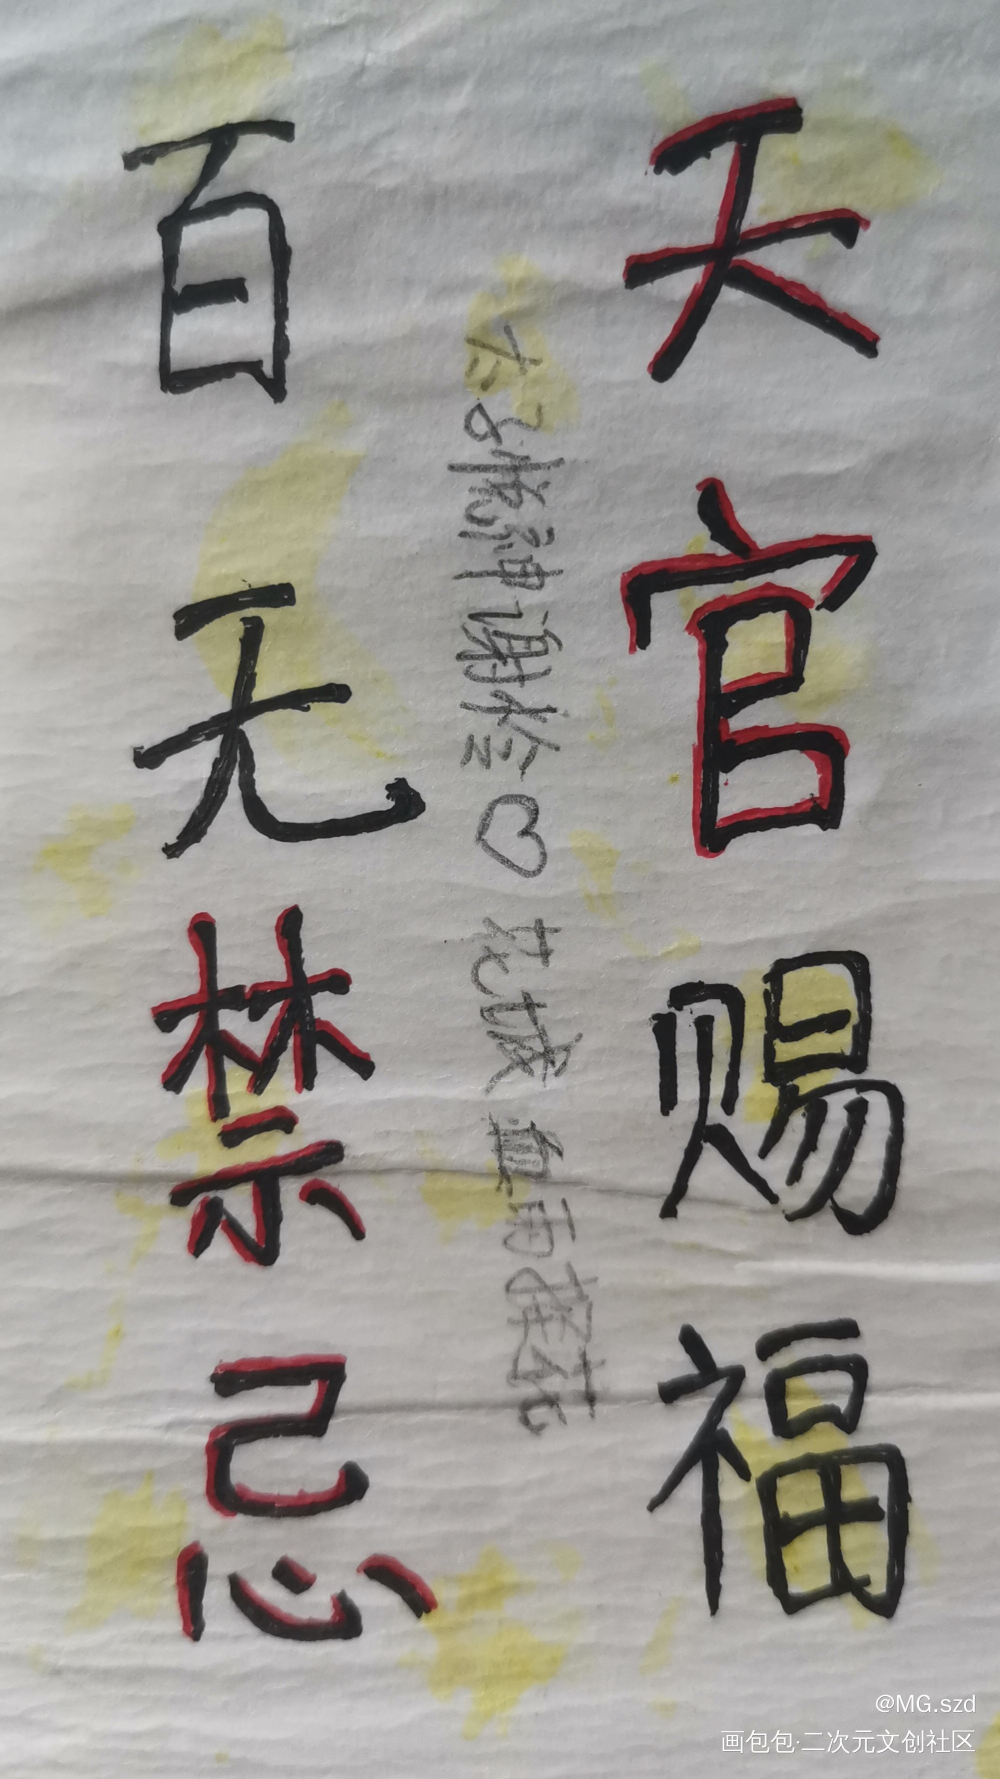 天官赐福
太子悦神谢怜♡花城血雨探花
百无禁忌
@MG.szd
画包包·二次元文创社区